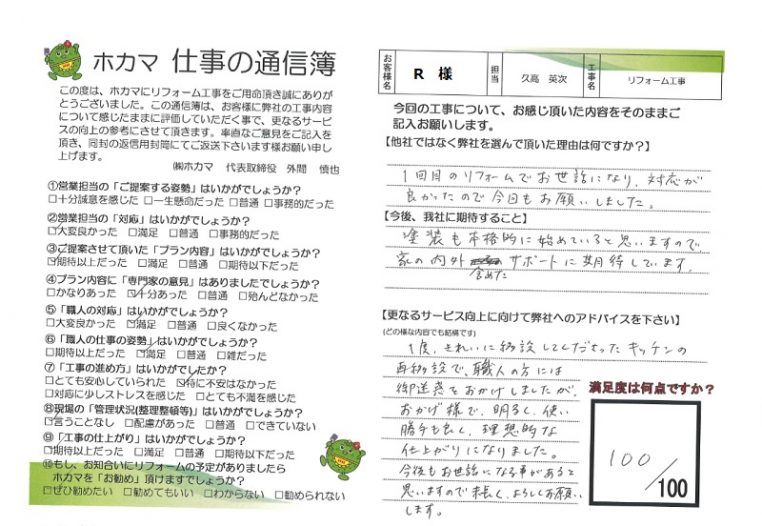 ホカマ 仕事の通信簿
この度は、ホカマにリフォーム工事をご用命頂き誠にありが
とうございました。この通信簿は、お客様に弊社の工事内容
について感じたままに評価していただく事で、更なるサービ
スの向上の参考にさせて頂きます。率直なご意見をご記入を
頂き、同封の返信用封筒にてご返送下さいます様お願い申し
上げます。
㈱ホカマ 代表取締役 外間 慎也
①営業担当の「ご提案する姿勢」はいかがでしょうか?
□十分誠意を感じた □一生懸命だった □普通 □事務的だった
②営業担当の「対応」はいかがでしょうか?
☑大変良かった □満足 □普通 □事務的だった
③ご提案させて頂いた「プラン内容」はいかがでしょうか?
☑期待以上だった □満足 □普通 □期待以下だった
④プラン内容に「専門家の意見」はありましたでしょうか?
□かなりあった ☑十分あった □普通 □殆んどなかった
⑤「職人の対応」はいかがでしょうか?
□大変良かった ☑満足 □普通 □良くなかった
⑥「職人の仕事の姿勢」はいかがでしょうか?
□期待以上だった ☑満足 □普通 □雑だった
⑦「工事の進め方」はいかがでしたか?
□とても安心していられた ☑特に不安はなかった
□対応に少しストレスを感じた □とても不満を感じた
⑧現場の「管理状況(整理整頓等)」はいかがでしょうか?
☑言うことなし □配慮があった □普通 □できていない
⑨「工事の仕上がり」はいかがでしょうか?
☑期待以上だった □満足 □普通 □期待以下だった
⑩もし、お知合いにリフォームの予定がありましたら
ホカマを「お勧め」頂けますでしょうか?
☑ぜひ勧めたい □勧めてもいい □わからない □勧められない
お客様名 R 様 担当 久高 英次 工事名 リフォーム工事
今回の工事について、お感じ頂いた内容をそのままご
記入お願いします。
【他社ではなく弊社を選んで頂いた理由は何ですか?】
1回目のリフォームでお世話になり、対応が
良かったので今回もお願いしました。
【今後、我社に期待すること】
塗装も本格的に始めていると思いますので
家の内外含めたサポートに期待しています。
【更なるサービス向上に向けて弊社へのアドバイスを下さい】
(どの様な内容でも結構です)
1度、きれいに移設してくださったキッチンの
再移設で、職人の方には
御迷惑をおかけしましたが、
おかげ様で、明るく、使い
勝手も良く、理想的な
仕上がりになりました。
今後もお世話になる事があると
思いますので末長く、よろしくお願い
します。
満足度は何点ですか?
100/100